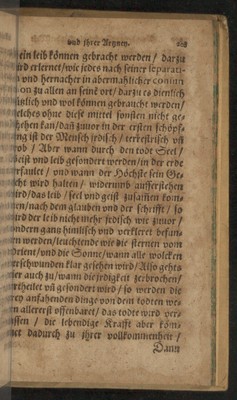 und ihrer Artzney.
ein leib können gebracht werden / darzu
und erlernet / wie jedes nach seiner separati-
und hernacher in abermahlicher coniun
on zu allen an seine ort / darzu es dienlich
üglich und wol können gebraucht werden /
elches ohne diese mittel sonsten nicht ge-
hehen kan / daß zuvor in der ersten schöpf-
ng ist der Mensch jrdisch / terrestrisch uñ
rob / Aber wann durch den todt Seel /
Geist und leib gesondert werden / in der erde
erfaulet / und wann der Höchste sein Ge-
cht wird halten / widerumb aufferstehen
ird / das leib / seel und geist zusamen kom-
en / nach dem glauben und der schrifft / so
ird der leib nicht mehr jrdisch wie zuvor /
ondern gang himlisch und verkleret befun-
en werden / leuchtende wie die sternen vom
Orient / und die Sonne / wann alle wolcken
erschwunden klar gesehen wird / Also gehts
ier auch zu / wann die jrdigkeit zerbrochen /
ertheilet uñ gesondert wird / so werden die
rey anfahenden dinge von dem todten we-
n allererst offenbaret / das todte wird ver-
assen / die lebendige Krafft aber köm-
et dadurch zu jhrer vollkommenheit /
Dann